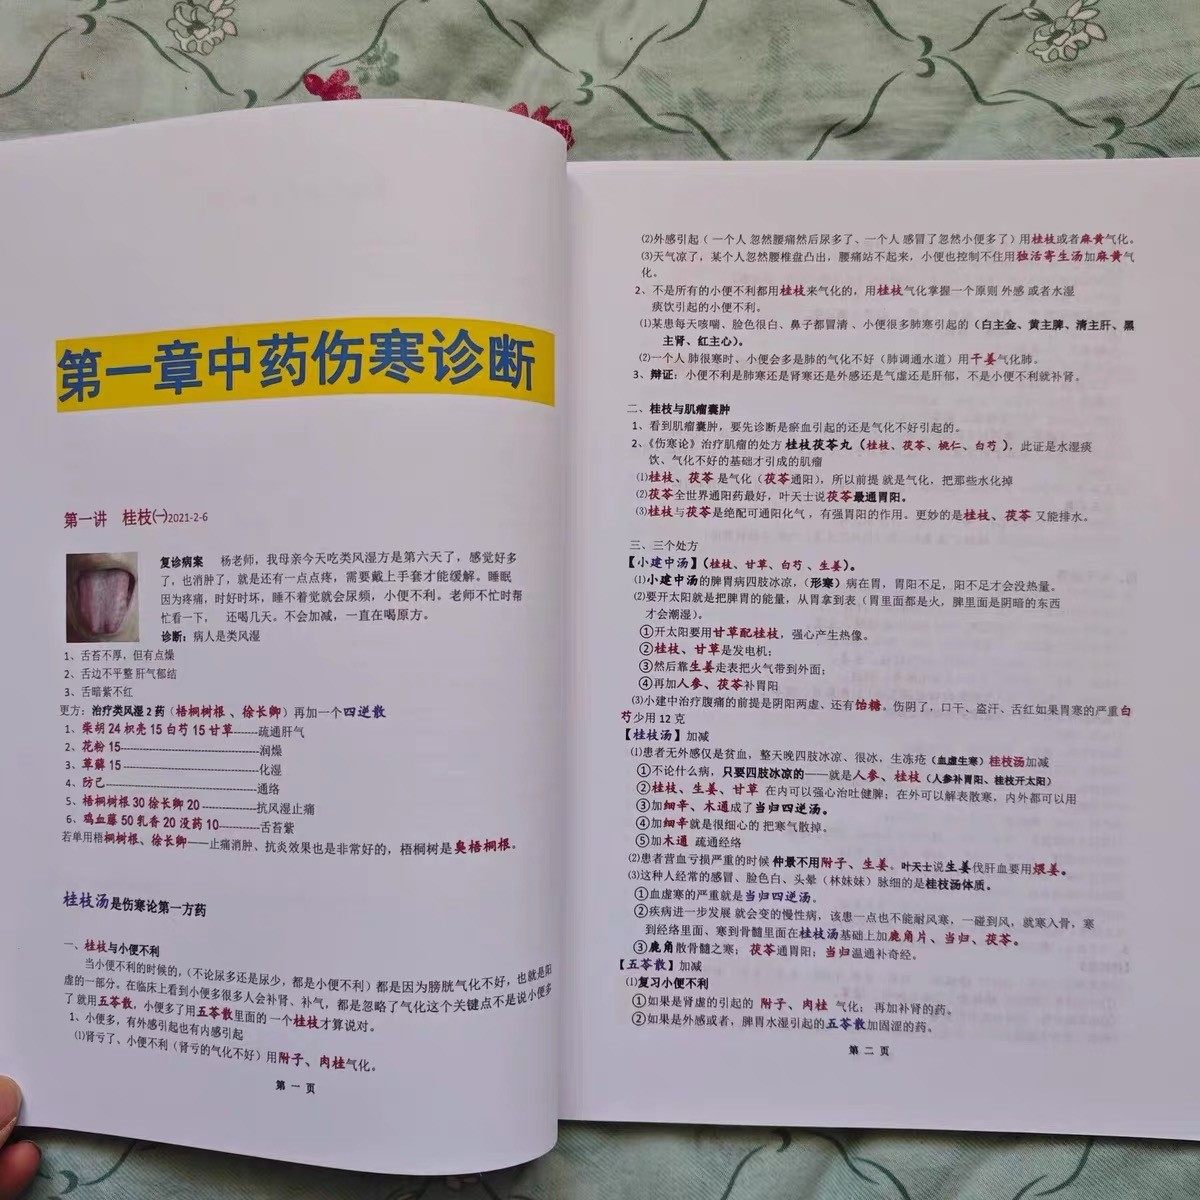 第一章中药伤寒诊断
第一讲 桂枝㈠2021-2-6
复诊病案 杨老师，我母亲今天吃类风湿方是第六天了，感觉好多
了，也消肿了，就是还有一点点疼，需要戴上手套才能缓解。睡眠
因为疼痛，时好时坏，睡不着觉就会尿频，小便不利。老师不忙时帮
忙看一下， 还喝几天。不会加减，一直在喝原方。
诊断：病人是类风湿
1、舌苔不厚，但有点燥
2、舌边不平整 肝气郁结
3、舌暗紫不红
更方：治疗类风湿 2 药（梧桐树根 、徐长卿）再加一个四逆散
1、柴胡 24 枳壳 15 白芍 15 甘草------疏通肝气
2、花粉 15------------------------------润燥
3、萆薢 15------------------------------化湿
4、防己---------------------------------通络
5、梧桐树根 30 徐长卿 20 ------------抗风湿止痛
6、鸡血藤 50 乳香 20 没药 10-----------舌苔紫
若单用梧桐树根、徐长卿——止痛消肿、抗炎效果也是非常好的，梧桐树是臭梧桐根。
桂枝汤是伤寒论第一方药
一、桂枝与小便不利
当小便不利的时候的，（不论尿多还是尿少，都是小便不利）都是因为膀胱气化不好，也就是阳
虚的一部分。在临床上看到小便多很多人会补肾、补气，都是忽略了气化这个关键点不是说小便多
了 就用五苓散，小便多了用五苓散里面的 一个桂枝才算说对。
1、小便多，有外感引起也有内感引起
⑴肾亏了、小便不利（肾亏的气化不好）用附子、肉桂气化。
第 一 页
⑵外感引起（ 一个人 忽然腰痛然后尿多了、一个人 感冒了忽然小便多了）用桂枝或者麻黄气化。
⑶天气凉了，某个人忽然腰椎盘凸出，腰痛站不起来，小便也控制不住用独活寄生汤加麻黄气
化。
2、不是所有的小便不利都用桂枝来气化的，用桂枝气化掌握一个原则 外感 或者水湿
痰饮引起的小便不利。
⑴某患每天咳喘、脸色很白、鼻子都冒清 、小便很多肺寒引起的（白主金、黄主脾、清主肝、黑
主肾、红主心）。
⑵一个人 肺很寒时、小便会多是肺的气化不好（肺调通水道）用干姜气化肺。
3、辩证：小便不利是肺寒还是肾寒还是外感还是气虚还是肝郁，不是小便不利就补肾。
二、桂枝与肌瘤囊肿
1、看到肌瘤囊肿，要先诊断是瘀血引起的还是气化不好引起的。
2、《伤寒论》治疗肌瘤的处方 桂枝茯苓丸（桂枝、茯苓、桃仁、白芍 ），此证是水湿痰
饮、气化不好的基础才引成的肌瘤
⑴桂枝、茯苓 是气化（茯苓通阳），所以前提 就是气化，把那些水化掉
⑵茯苓全世界通阳药最好，叶天士说茯苓最通胃阳。
⑶桂枝与茯苓是绝配可通阳化气 ，有强胃阳的作用。更妙的是桂枝、茯苓 又能排水。
三、三个处方
【小建中汤】（桂枝、甘草、白芍 、生姜）。
⑴小建中汤的脾胃病四肢冰凉，（形寒）病在胃，胃阳不足，阳不足才会没热量。
⑵要开太阳就是把脾胃的能量，从胃拿到表（胃里面都是火，脾里面是阴暗的东西
才会潮湿）。
①开太阳要用甘草配桂枝，强心产生热像。
②桂枝、甘草是发电机；
③然后靠生姜走表把火气带到外面；
④再加人参、茯苓补胃阳
⑶小建中治疗腹痛的前提是阴阳两虚、还有饴糖。伤阴了，口干、盗汗、舌红如果胃寒的严重白
芍少用 12 克
【桂枝汤】加减
⑴患者无外感仅是贫血，整天晚四肢冰凉、很冰，生冻疮（血虚生寒）桂枝汤加减
①不论什么病，只要四肢冰凉的——就是人参、桂枝（人参补胃阳、桂枝开太阳）
②桂枝、生姜、甘草 在内可以强心治吐健脾；在外可以解表散寒，内外都可以用
③加细辛、木通成了当归四逆汤。
④加细辛就是很细心的 把寒气散掉。
⑤加木通 疏通经络
⑵患者营血亏损严重的时候 仲景不用附子、生姜。叶天士说生姜伐肝血要用煨姜。
⑶这种人经常的感冒、脸色白、头晕（林妹妹）脉细的是桂枝汤体质。
①血虚寒的严重就是当归四逆汤。
②疾病进一步发展 就会变的慢性病，该患一点也不能耐风寒，一碰到风，就寒入骨，寒
到经络里面、寒到骨髓里面在桂枝汤基础上加鹿角片、当归、茯苓。
③鹿角散骨髓之寒； 茯苓通胃阳；当归温通补奇经。
【五苓散】加减
⑴复习小便不利
①如果是肾虚的引起的 附子、肉桂 气化； 再加补肾的药。
②如果是外感或者，脾胃水湿引起的五苓散加固涩的药。
第 二 页